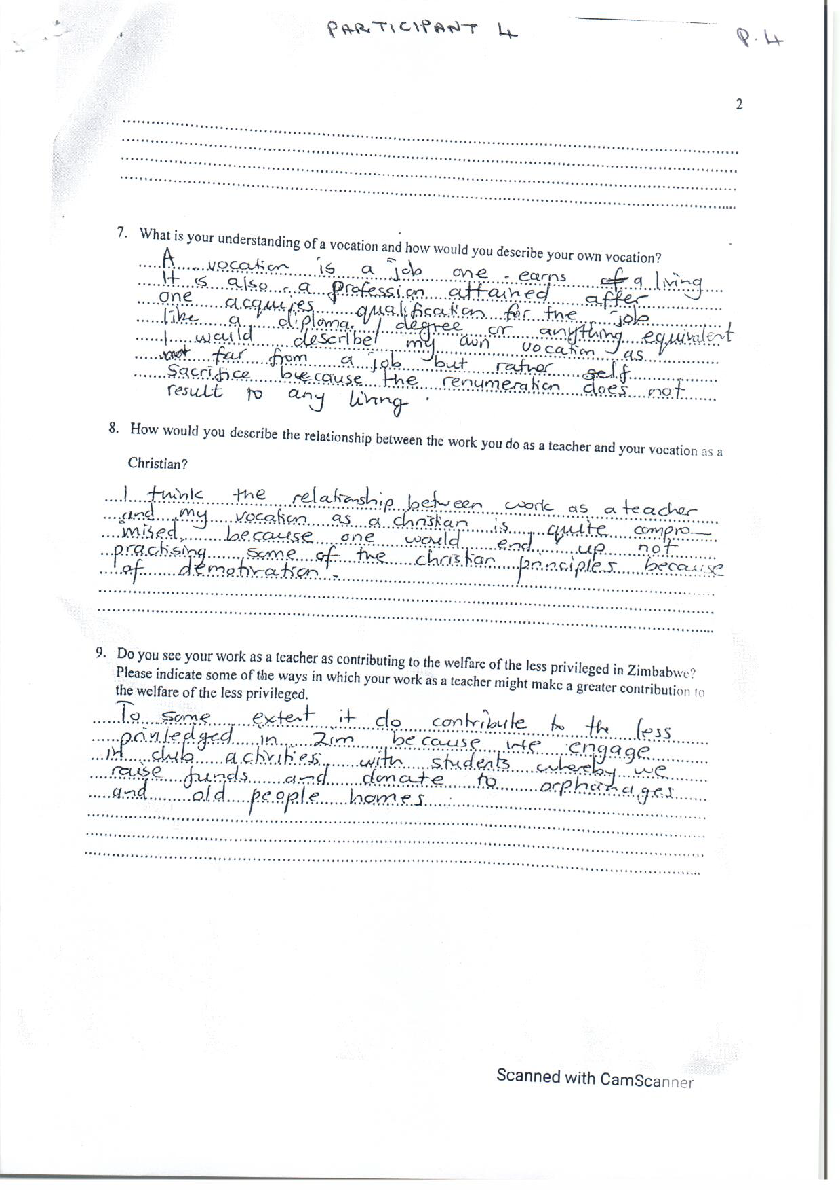 PARTICIPANT 4
P.4
2
7. What is your understanding of a vocation and how would you describe your own vocation?
A vocation is a job one earns a living
It is also a profession attained after
one acquires qualification for the job
like a diploma / degree or anything equivalent
I would describe my own vocation as
far from a job but rather self
Sacrifice because the renumeration does not
result to any living.
8. How would you describe the relationship between the work you do as a teacher and your vocation as a
Christian?
I think the relationship between work as a teacher
and my vocation as a christian is quite compro-
mised because one would end up not
practising some of the christian principles because
of demotivation.
9. Do you see your work as a teacher as contributing to the welfare of the less privileged in Zimbabwe?
Please indicate some of the ways in which your work as a teacher might make a greater contribution to
the welfare of the less privileged.
To some extent it do contribute to the less
priviledged in Zim because we engage
in club activities with students whereby we
raise funds and donate to orphanages
and old people homes.
Scanned with CamScanner